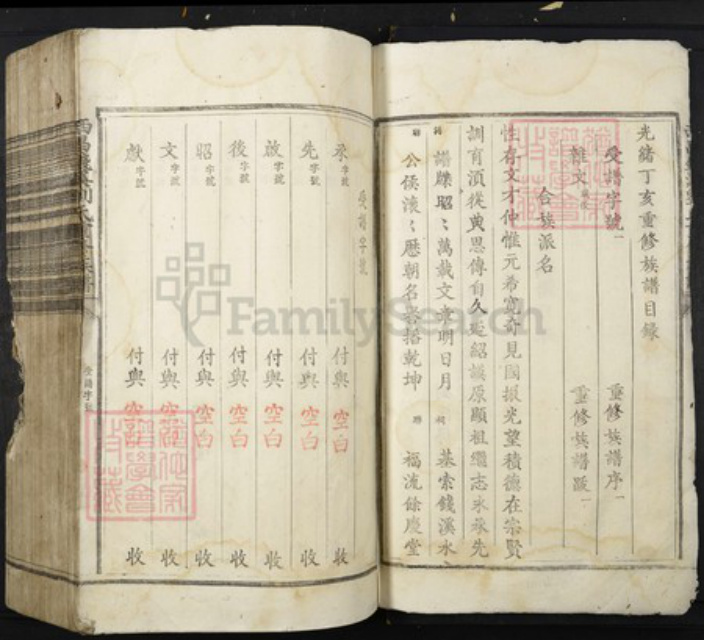 光緒丁亥重修族譜目錄
受譜字號一
重修族譜序一
雜文
重修族譜跋一
合族派名
性存文才仲惟元希寬奇見國振光望積德在宗賢
訓育須從典思傳自久延紹謨原顯祖繼志永承先
譜牒昭〻萬載文章明日月
基索錢溪水
公侯滾〻歷朝名宦括乾坤
福流餘慶堂
受譜字號
承字號 付與 空白 收
先字號 付與 空白 收
啟字號 付與 空白 收
後字號 付與 空白 收
昭字號 付與 空白 收
文字號 付與 空白 收
獻字號 付與 空白 收
受譜字號
FamilySearch